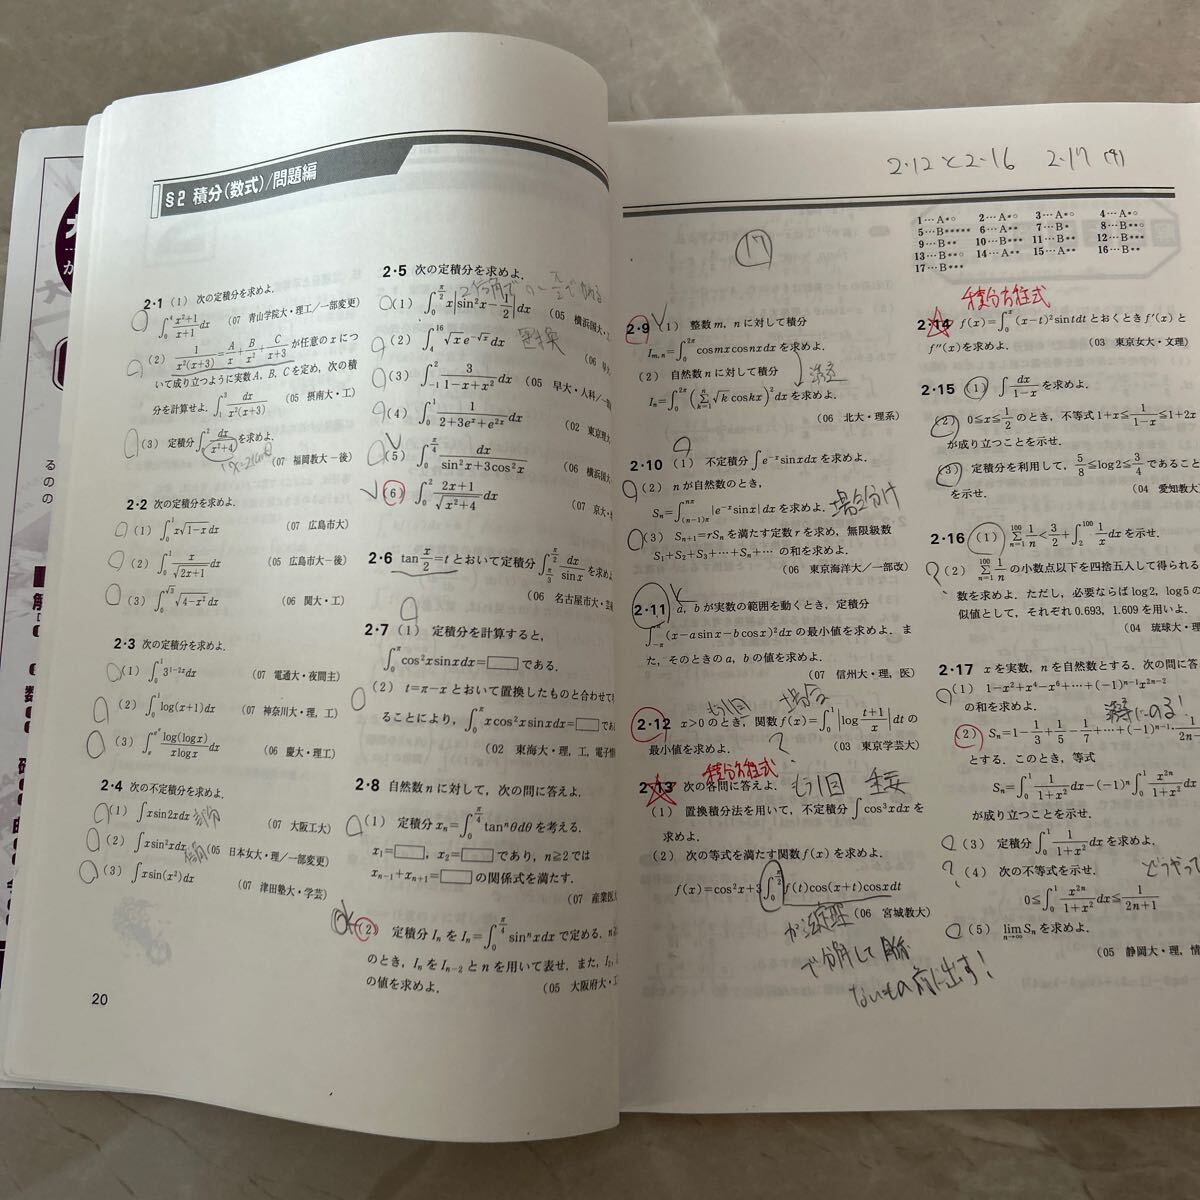 §2 積分(数式)/問題編
2・1 (1) 次の定積分を求めよ.
∫₀⁴ (x²+1)/(x+1) dx (07 青山学院大・理工/一部変更)
(2) 1/(x²(x+3)) = A/x + B/x² + C/(x+3) が任意の x につ
いて成り立つように実数 A, B, C を定め, 次の積
分を計算せよ. ∫₁² dx/(x²(x+3)) (05 摂南大・工)
(3) 定積分 ∫₀² dx/(x²+4) を求めよ.
(07 福岡教大－後)
2・2 次の定積分を求めよ.
(1) ∫₀¹ x√(1-x) dx (07 広島市大)
(2) ∫₀¹ x/√(2x+1) dx (05 広島市大－後)
(3) ∫₀^√3 √(4-x²) dx (06 関大・工)
2・3 次の定積分を求めよ.
(1) ∫₀¹ 3^(1-2x) dx (07 電通大・夜間主)
(2) ∫₀¹ log(x+1)dx (07 神奈川大・理, 工)
(3) log(logx)/(xlogx) dx (06 慶大・理工)
2・4 次の不定積分を求めよ.
(1) ∫xsin2xdx (07 大阪工大)
(2) ∫xsin²xdx (05 日本女大・理/一部変更)
(3) ∫xsin(x²)dx (07 津田塾大・学芸)
20
2・5 次の定積分を求めよ.
(1) ∫₀^(π/2) x|sin²x-1/2|dx (05 横浜国大・工
(2) ∫₄¹⁶ √x e^(-√x) dx 置換 (06
(3) ∫₋₁¹ 3/(1-x+x²) dx (05 早大・人科/一
(4) ∫₀¹ 1/(2+3eˣ+e²ˣ) dx (02 東京理大
(5) ∫₀^(π/4) dx/(sin²x+3cos²x) (06 横浜国大
(6) ∫₀² (2x+1)/√(x²+4) dx (07 京大・
2・6 tan x/2=t とおいて定積分 ∫_(π/3)^(π/2) dx/sinx を求め
(06 名古屋市大・
2・7 (1) 定積分を計算すると,
∫₀^π cos²xsinxdx=□である.
(2) t=π-x とおいて置換したものと合わせて
ることにより, ∫₀^π xcos²xsinxdx=□であ
(02 東海大・理, 工, 電子情
2・8 自然数 n に対して, 次の問に答えよ.
(1) 定積分 xₙ=∫₀^(π/4) tanⁿθdθ を考える.
x₁=□, x₂=□であり, n≧2 では
xₙ₋₁+xₙ₊₁=□の関係式を満たす.
(07 産業医
OK (2) 定積分 Iₙ を Iₙ=∫₀^(π/4) sinⁿxdx で定める.
のとき, Iₙ を Iₙ₋₂ と n を用いて表せ. また,
の値を求めよ. (05 大阪府大・工
2・12と2・16 2・17 (4)
17
1…A*○ 2…A*○ 3…A*○ 4…A*○
5…B***** 6…A** 7…B* 8…B**○
9…B** 10…B*** 11…B** 12…B**
13…B**○ 14…A** 15…A* 16…B**
17…B***
2・9 (1) 整数 m, n に対して積分
I_(m,n)=∫₀^(2π) cosmxcosnxdx を求めよ.
(2) 自然数 n に対して積分
Iₙ=∫₀^(2π) (Σ_(k=1)^n √k coskx)² dx を求めよ.
(06 北大・理系)
2・10 (1) 不定積分 ∫e⁻ˣsinxdx を求めよ.
(2) n が自然数のとき,
Sₙ=∫_((n-1)π)^(nπ) |e⁻ˣsinx|dx を求めよ. 場合分け
(3) Sₙ₊₁=rSₙ を満たす定数 r を求め, 無限級数
S₁+S₂+S₃+…+Sₙ+… の和を求めよ.
(06 東京海洋大/一部改)
2・11 a, b が実数の範囲を動くとき, 定積分
∫_(-π)^π (x-asinx-bcosx)²dx の最小値を求めよ. ま
た, そのときの a, b の値を求めよ.
(07 信州大・理, 医)
もう1回 場合
2・12 x>0 のとき, 関数 f(x)=∫₀¹ |log (t+1)/x| dt の
最小値を求めよ. ? (03 東京学芸大)
積分方程式
2・13 次の各問に答えよ. もう1回 重要
(1) 置換積分法を用いて, 不定積分 ∫cos³xdx を
求めよ.
(2) 次の等式を満たす関数 f(x) を求めよ.
f(x)=cos²x+3∫₀^(π/2) f(t)cos(x+t)cosxdt
(06 宮城教大)
ないもの前に出す!
積分方程式
2・14 f(x)=∫₀ˣ (x-t)²sintdt とおくとき f′(x) と
f″(x) を求めよ. (03 東京女大・文理)
2・15 (1) ∫dx/(1-x) を求めよ.
(2) 0≦x≦1/2 のとき, 不等式 1+x≦1/(1-x)≦1+2x
が成り立つことを示せ.
(3) 定積分を利用して, 5/8≦log2≦3/4 であること
を示せ. (04 愛知教大)
2・16 (1) Σ_(n=1)^100 1/n<3/2+∫₂^100 1/x dx を示せ.
? (2) Σ_(n=1)^100 1/n の小数点以下を四捨五入して得られる
数を求めよ. ただし, 必要ならば log2, log5 の
似値として, それぞれ 0.693, 1.609 を用いよ.
(04 琉球大・理
2・17 x を実数, n を自然数とする. 次の問に答
(1) 1-x²+x⁴-x⁶+…+(-1)ⁿ⁻¹x²ⁿ⁻²
の和を求めよ.
(2) Sₙ=1-1/3+1/5-1/7+…+(-1)ⁿ⁻¹ 1/2n-
とする. このとき, 等式
Sₙ=∫₀¹ 1/(1+x²) dx-(-1)ⁿ∫₀¹ x²ⁿ/(1+x²) dx
が成り立つことを示せ.
(3) 定積分 ∫₀¹ 1/(1+x²) dx を求めよ.
? (4) 次の不等式を示せ. どうやって
0≦∫₀¹ x²ⁿ/(1+x²) dx≦1/(2n+1)
(5) lim_(n→∞) Sₙ を求めよ.
(05 静岡大・理, 情